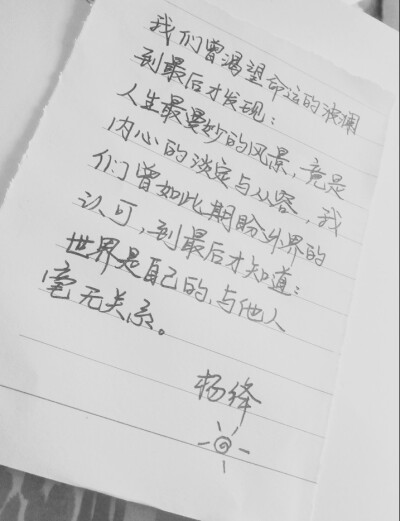 我们曾渴望命运的波澜
到最后才发现：
人生最曼妙的风景，竟是
内心的淡定与从容，我
们曾如此期盼外界的
认可，到最后才知道：
世界是自己的，与他人
毫无关系。
杨绛